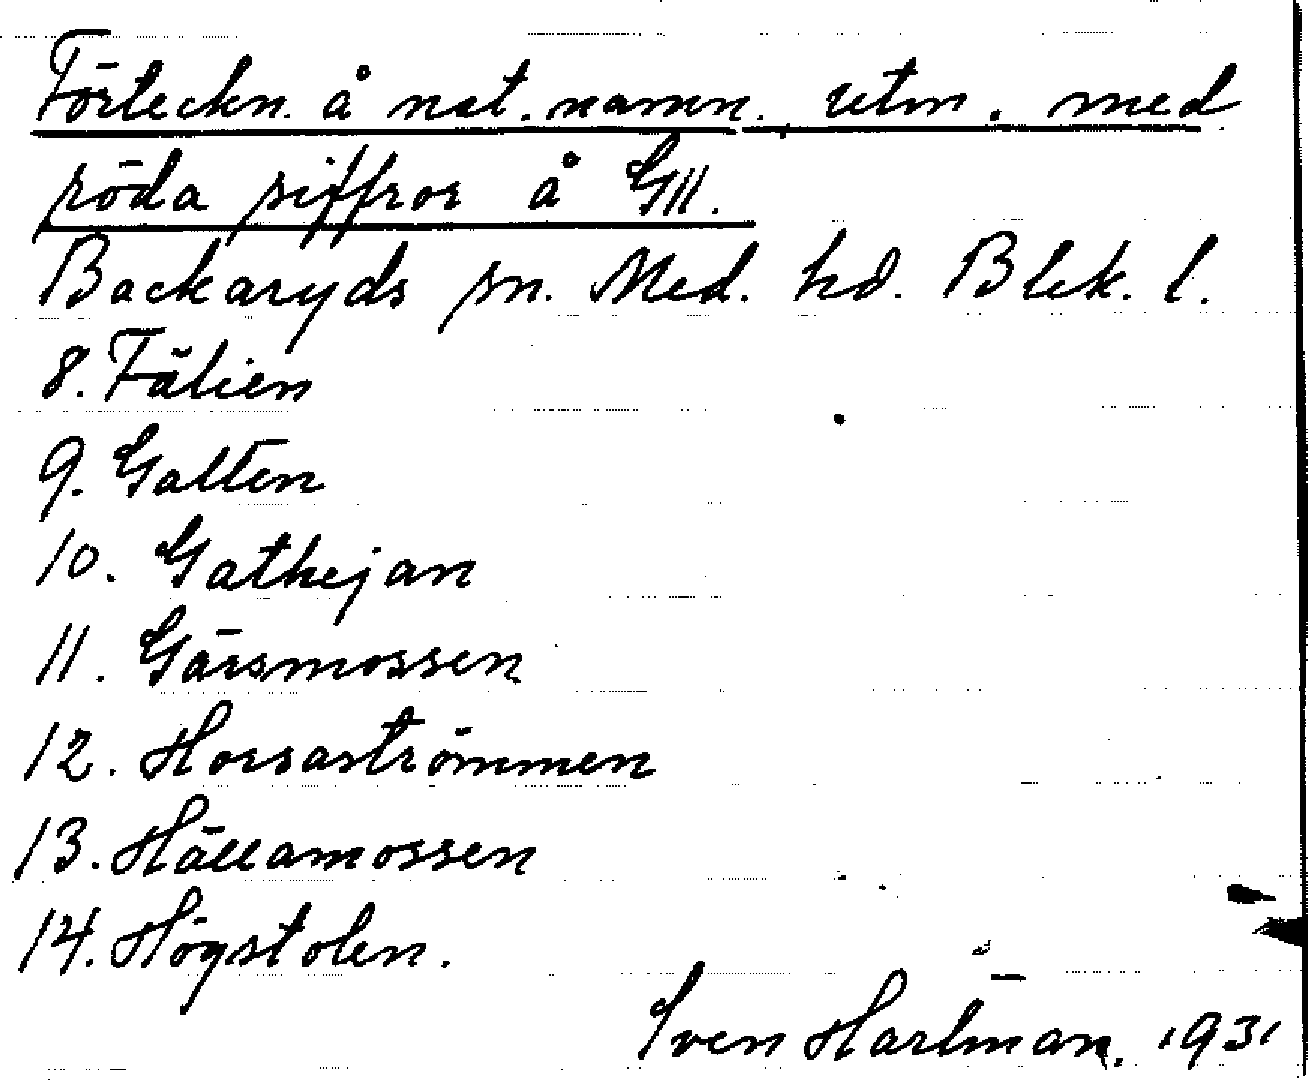 Förteckn. å nat. namn. utm. med
röda siffror å GII.
Backaryds sn. Med. hd. Blek. l.
8. Fälien
9. Galten
10. Gathejan
11. Gärsmossen
12. Horsaströmmen
13. Hällamossen
14. Högstolen.
Sven Hartman. 1931